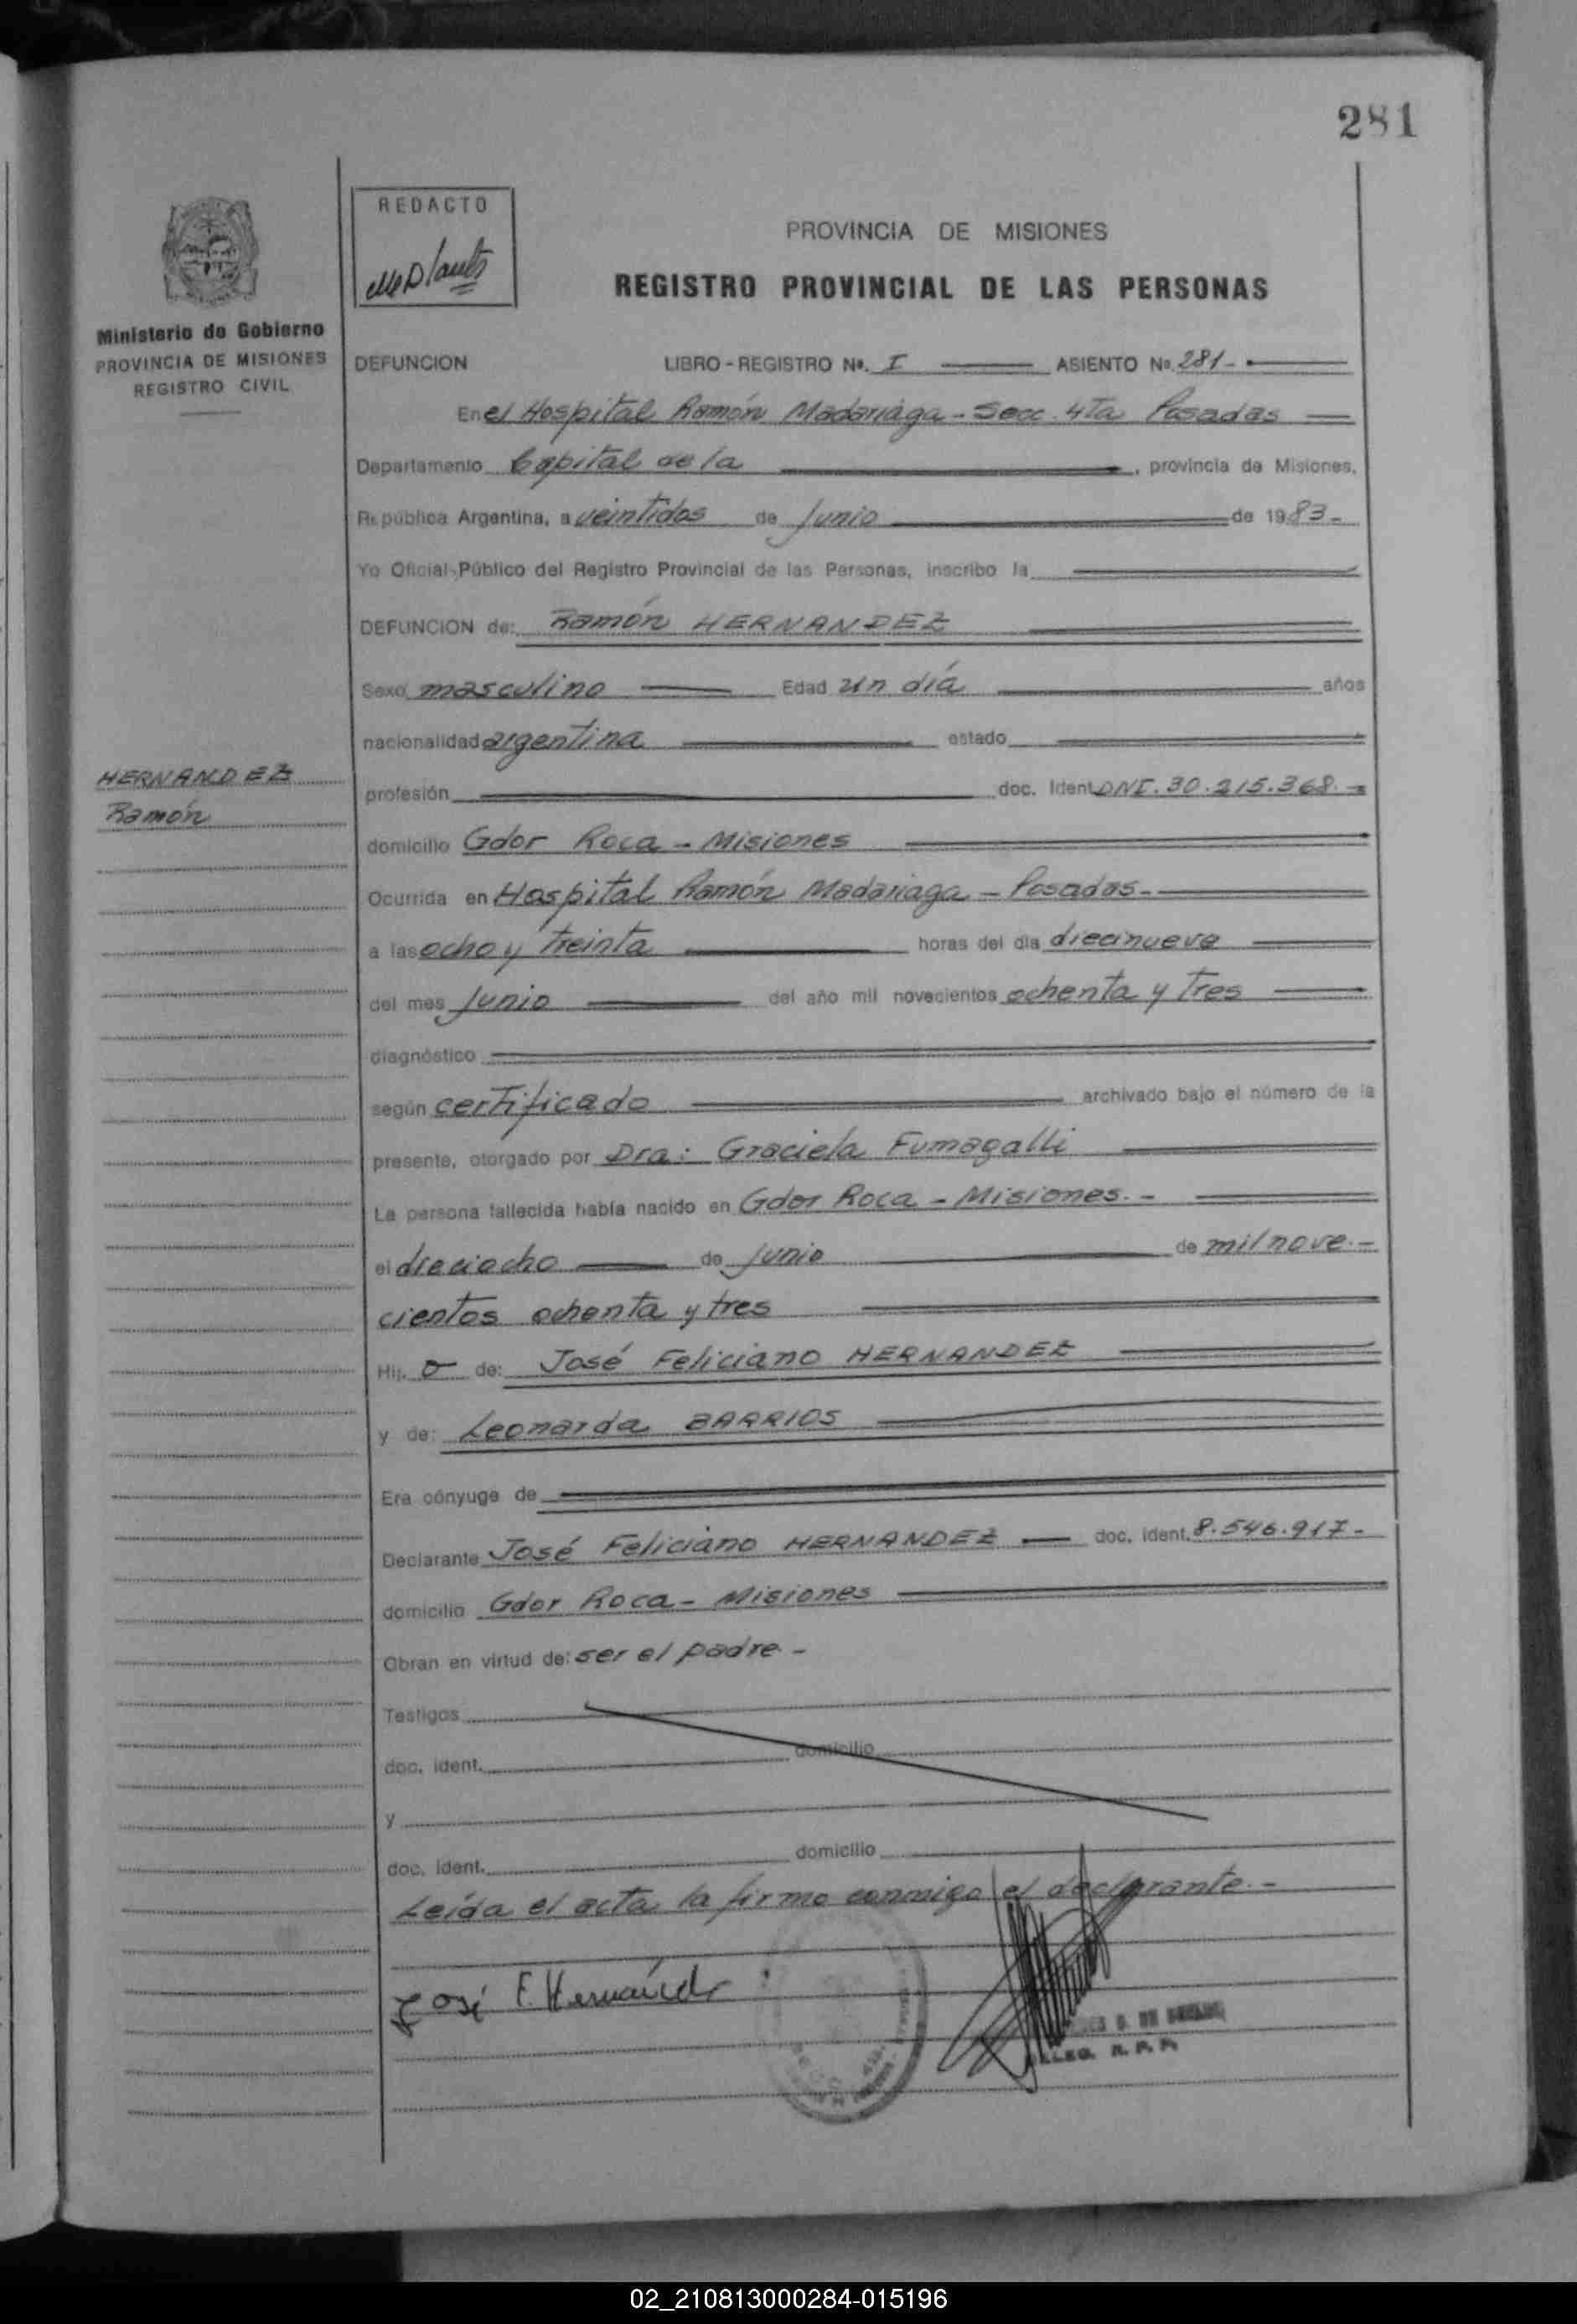 281
REDACTO
PROVINCIA DE MISIONES
REGISTRO PROVINCIAL DE LAS PERSONAS
Ministerio de Gobierno
PROVINCIA DE MISIONES
REGISTRO CIVIL
DEFUNCION LIBRO - REGISTRO Nº. I ASIENTO Nº 281-
En el Hospital Ramón Madariaga - Secc. 4Ta Posadas
Departamento Capital de la , provincia de Misiones,
República Argentina, a veintidos de Junio de 1983-
Yo Oficial Público del Registro Provincial de las Personas, inscribo la
DEFUNCION de: Ramón HERNANDEZ
Sexo masculino Edad un día años
nacionalidad argentina estado
HERNANDEZ
Ramón
profesión doc. Ident DNI. 30.215.368.-
domicilio Gdor Roca - Misiones
Ocurrida en Hospital Ramón Madariaga - Posadas-
a las ocho y treinta horas del dia diecinueve
del mes Junio del año mil novecientos ochenta y tres
diagnóstico
según certificado archivado bajo el número de la
presente, otorgado por Dra: Graciela Fumagalli
La persona fallecida había nacido en Gdor Roca - Misiones.-
el dieciocho de Junio de mil nove.-
cientos ochenta y tres
Hij. o de: José Feliciano HERNANDEZ
y de: Leonarda BARRIOS
Era cónyuge de
Declarante José Feliciano HERNANDEZ doc. ident. 8.546.917-
domicilio Gdor Roca - Misiones
Obran en virtud de: ser el padre.-
Testigos
doc. ident. domicilio
y
doc. ident. domicilio
Leída el acta la firma conmigo el declarante.-
José F. Hernández
R. P. P.
02_210813000284-015196